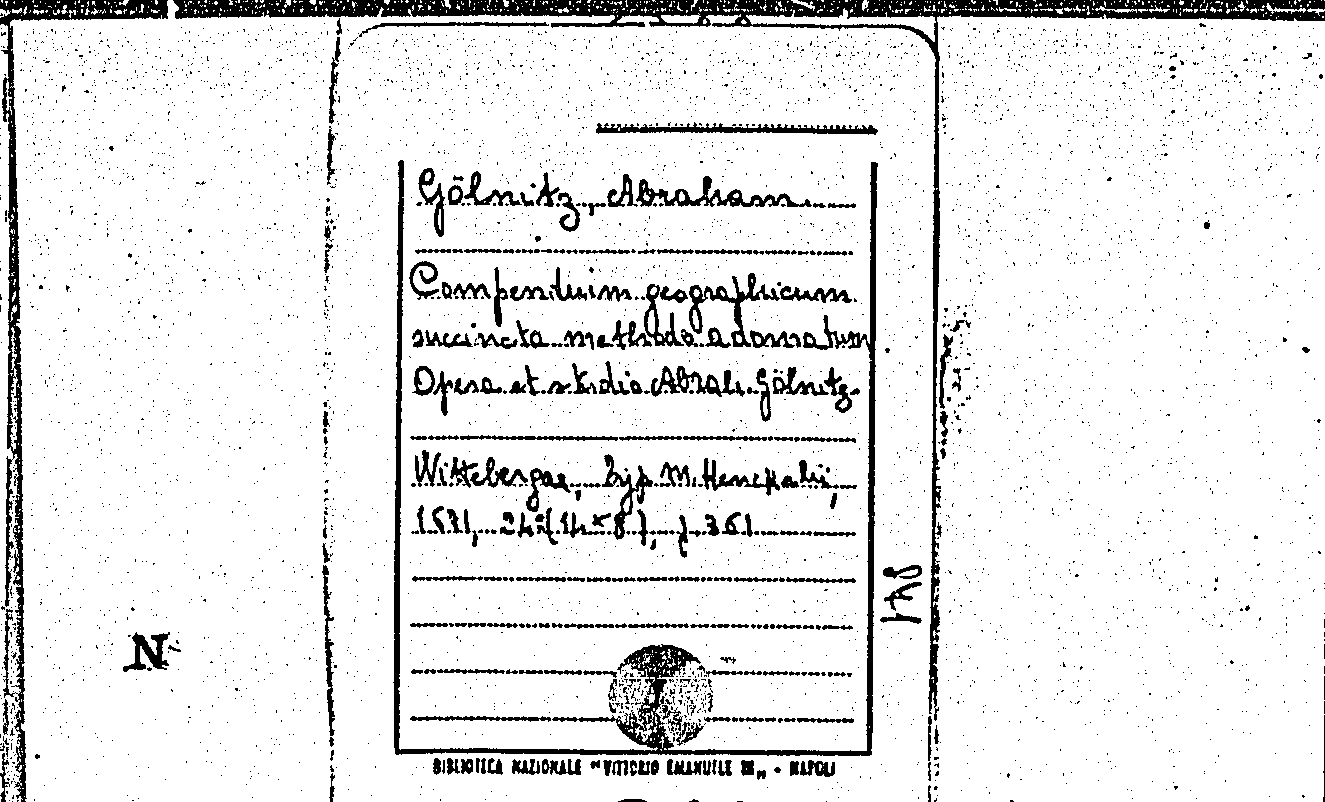 Gölnitz, Abraham
Compendium geographicum
succincta methodo adornatum
Opera et studio Abrah. Gölnitz
Wittebergae, Typ M. Henckelii,
24° (14×8), p. 361
N
BIBLIOTECA NAZIONALE "VITTORIO EMANUELE III" - NAPOLI